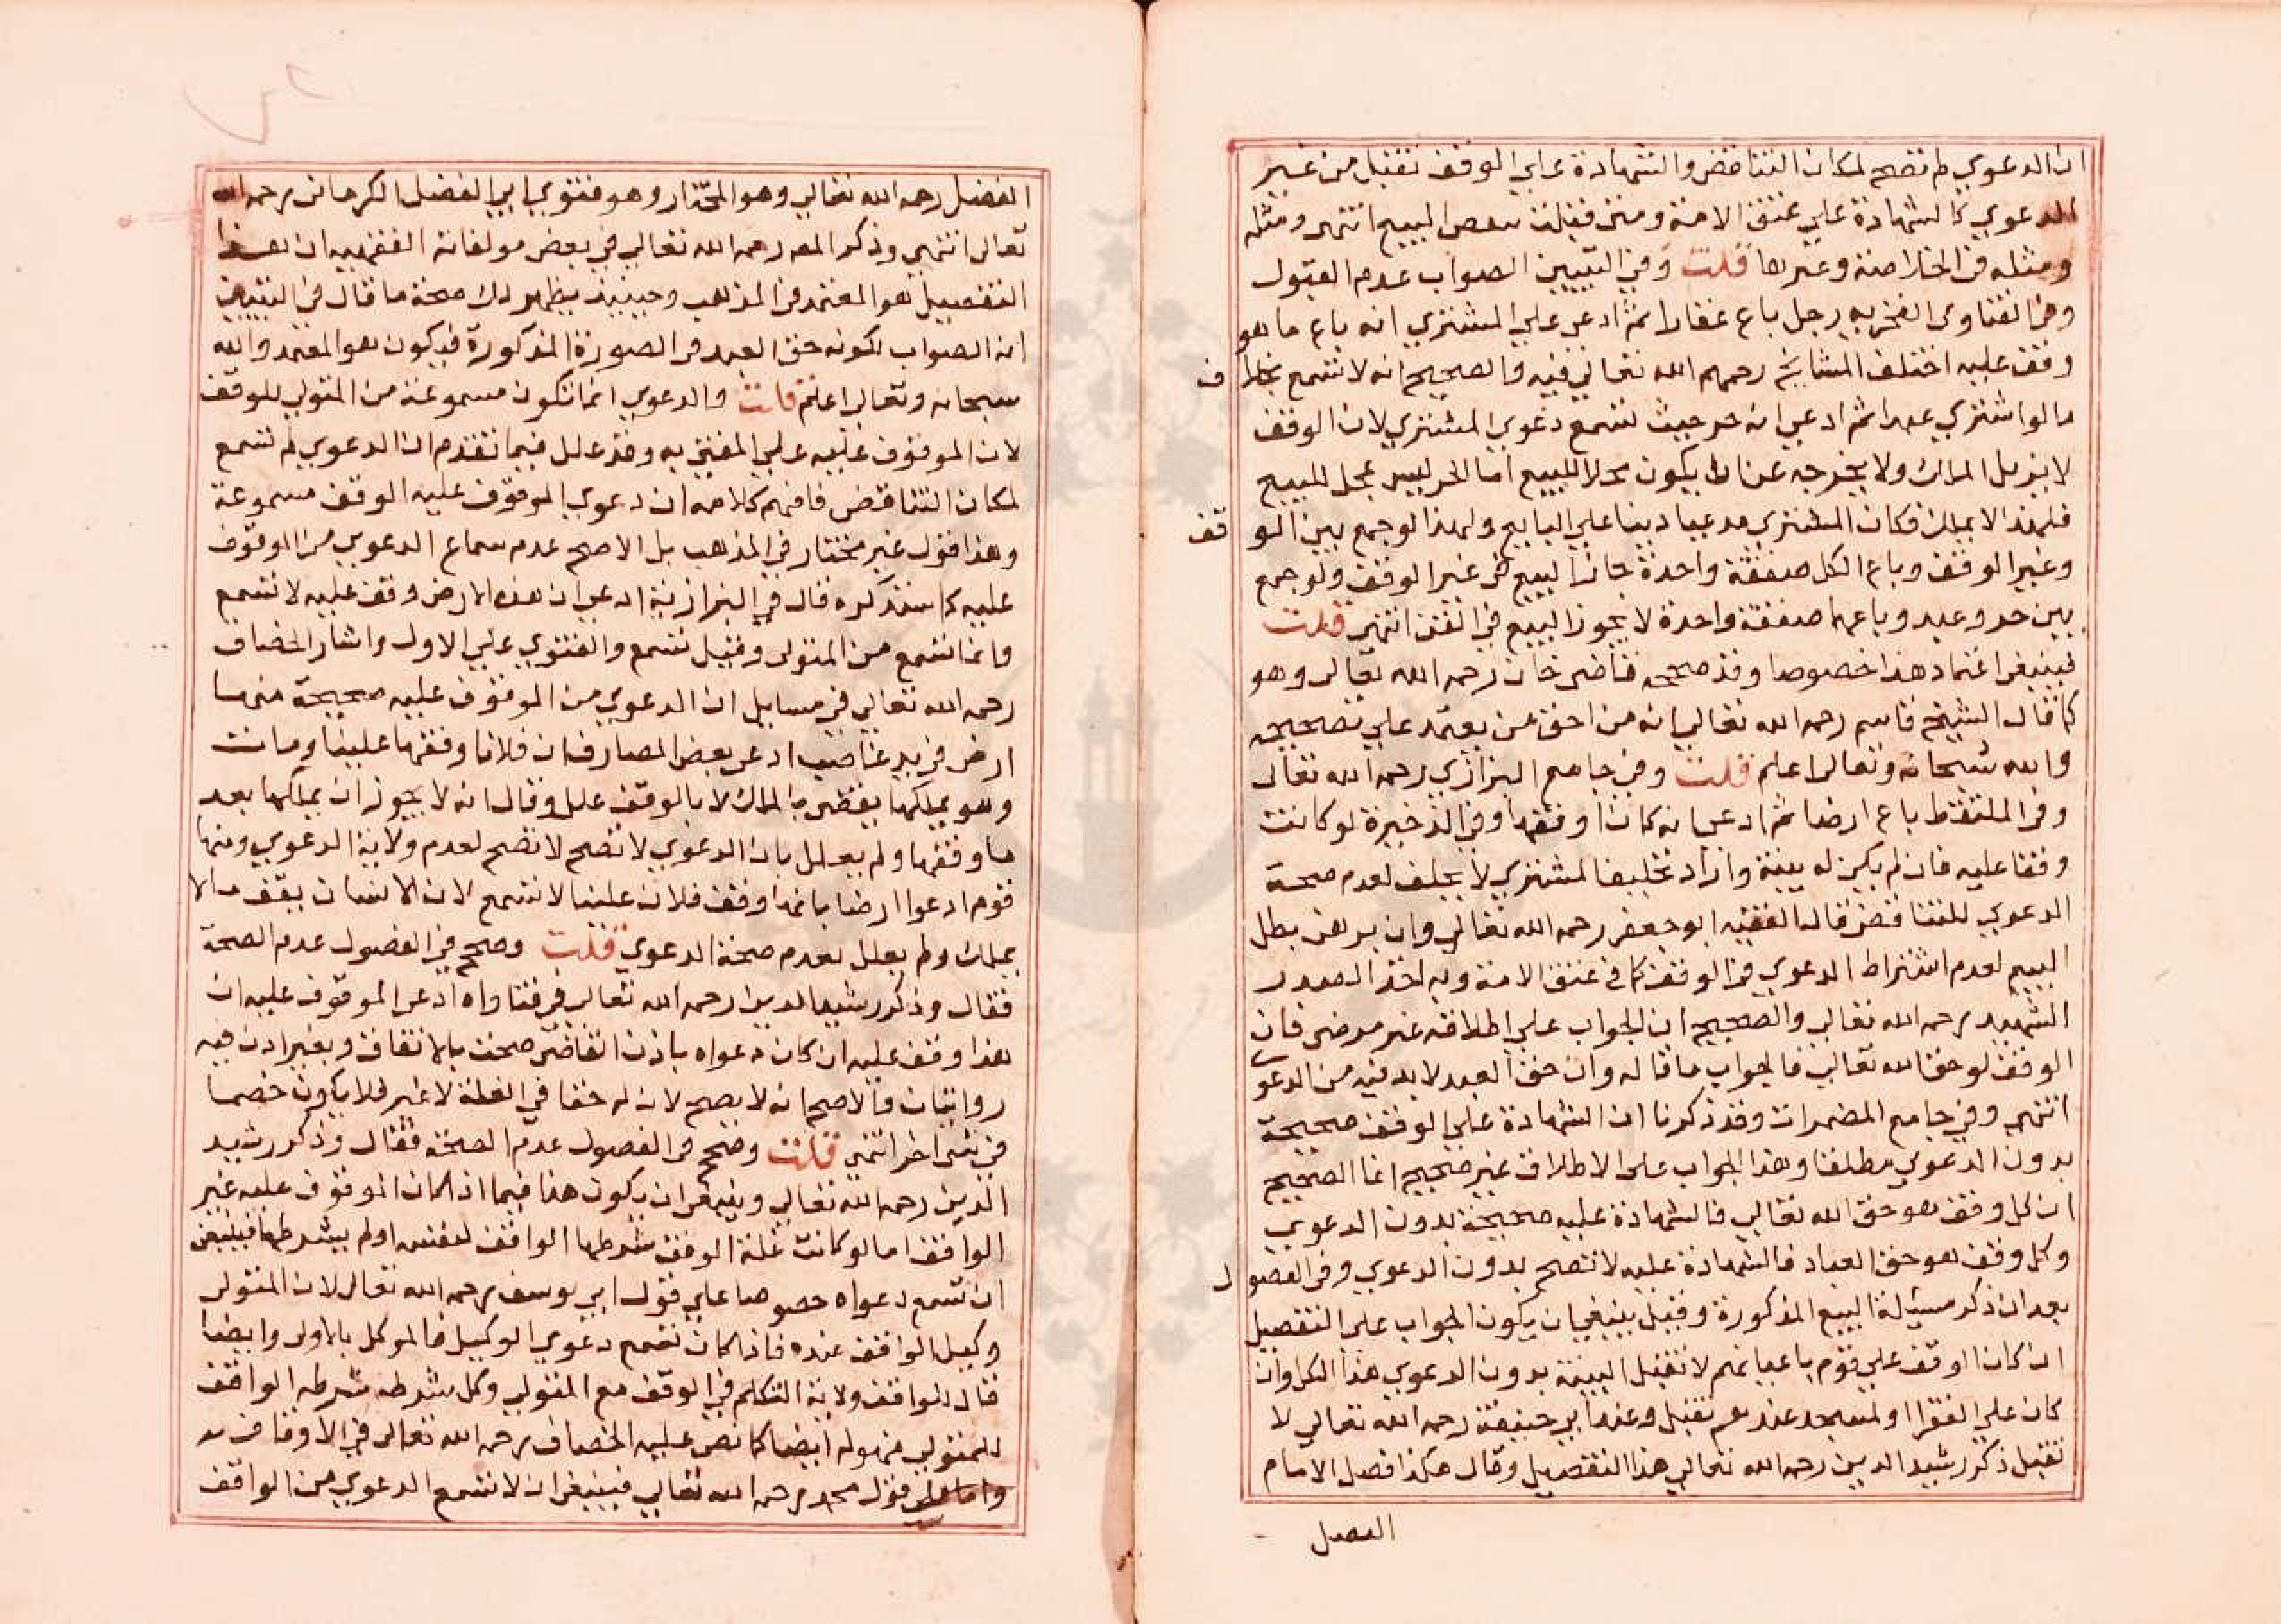 ان الدعوي لم تصح لمكان التناقض والشهادة علي الوقف تقبل من غير
الدعوي كالشهادة علي عتق الامة ومتي قبلت نقض البيع انتهي ومثله
ومثله في الخلاصة وغيرها قلت وفي التبيين الصواب عدم القبول
وفي الفتاوى الفخريه رجل باع عقارا ثم ادعي علي المشتري انه باع ما هو
وقف عليه اختلف المشايخ رحمهم الله تعالي فيه والصحيح انه لا تسمع بخلاف
ما لو اشتري عبدا ثم ادعي انه حر حيث تسمع دعوي المشتري لان الوقف
لا يزيل الملك ولا يخرجه عن ان يكون محلا للبيع اما الحر ليس بمحل للبيع
فلهذا لا يملك فكان المشتري مدعيا دينا علي البايع ولهذا لو جمع بين الوقف
وغير الوقف وباع الكل صفقة واحدة جاز البيع في غير الوقف ولو جمع
بين حر وعبد وباعهما صفقة واحدة لا يجوز البيع في القن انتهي قلت
فينبغي اعتماد هذا خصوصا وقد صححه قاضي خان رحمه الله تعالى وهو
كما قال الشيخ قاسم رحمه الله تعالي انه من احق من يعتمد علي تصحيحه
والله سبحانه وتعالى اعلم قلت وفي جامع البزازي رحمه الله تعالى
وفي الملتقط باع ارضا ثم ادعي انه كان اوقفها وفي الذخيرة لو كانت
وقفا عليه فان لم يكن له بينة واراد تحليف المشتري لا يحلف لعدم صحة
الدعوي للتناقض قال الفقيه ابو جعفر رحمه الله تعالي وان برهن بطل
البيع لعدم اشتراط الدعوي في الوقف كما في عتق الامة وبه اخذ الصدر
الشهيد رحمه الله تعالي والصحيح ان الجواب علي اطلاقه غير مرضي فان
الوقف لو حق الله تعالي فالجواب ما قاله وان حق العبد لا بد فيه من الدعوي
انتهي وفي جامع المضمرات وقد ذكرنا ان الشهادة علي الوقف صحيحة
بدون الدعوي مطلقا وهذا الجواب على الاطلاق غير صحيح انما الصحيح
ان كل وقف هو حق الله تعالي فالشهادة عليه صحيحة بدون الدعوي
وكل وقف هو حق العباد فالشهادة عليه لا تصح بدون الدعوي وفي الفصول
بعد ان ذكر مسئلة البيع المذكورة وقيل ينبغي ان يكون الجواب علي التفصيل
ان كان الوقف علي قوم باعيانهم لا تقبل البينة بدون الدعوي هذا الكل وان
كان علي الفقرا او لمسجد عندهم تقبل وعند ابي حنيفة رحمه الله تعالي لا
تقبل ذكر رشيد الدين رحمه الله تعالي هذا التفصيل وقال هكذا فصل الامام
الفضل
الفضل رحمه الله تعالي وهو المختار وهو فتوي ابي الفضل الكرماني رحمه الله
تعالى انتهي وذكر المص رحمه الله تعالي في بعض مولفاته الفقهيه ان هذا
التفصيل هو المعتمد في المذهب وحينيذ يظهر لك صحة ما قال في التبيين
ان الصواب لكونه حق العبد في الصورة المذكورة فيكون هو المعتمد والله
سبحانه وتعالى اعلم قلت والدعوي انما تكون مسموعة من المتولي للوقف
لان الموقوف عليه علي المفتي به وقد علل فيما تقدم ان الدعوي لم تسمع
لمكان التناقض فافهم كلامه ان دعوي الموقوف عليه الوقف مسموعة
وهذا قول غير مختار في المذهب بل الاصح عدم سماع الدعوي من الموقوف
عليه كما ستذكره قال في البزازية ادعي ان هذه الارض وقف عليه لا تسمع
وانما تسمع من المتولى وقيل تسمع والفتوي علي الاول واشار الخصاف
رحمه الله تعالي في مسايل ان الدعوي من الموقوف عليه صحيحة منها
ارض في يد غاصب ادعي بعض المصارف ان فلانا وقفها علينا ومات
وهو يملكها يقضي بالملك لا بالوقف علل وقال انه لا يجوز ان يملكها بعد
ما وقفها ولم يعلل بان الدعوي لا تصح لا تصح لعدم ولاية الدعوي ومنها
قوم ادعوا ارضا بانها وقف فلان علينا لا تسمع لان الانسان يقف ما لا
يملك ولم يعلل بعدم صحة الدعوي قلت وصحح في الفصول عدم الصحة
فقال وذكر رشيد الدين رحمه الله تعالى في فتاواه ادعى الموقوف عليه ان
هذا وقف عليه ان كان دعواه باذن القاضي صحت بالاتفاق وبغير اذن فيه
روايتان والاصح انه لا يصح لان له حقا في الغلة لا غير فلا يكون خصما
في شي اخر انتهي قلت وصحح في الفصول عدم الصحة فقال وذكر رشيد
الدين رحمه الله تعالي وينبغي ان يكون هذا فيما اذا كان الموقوف عليه غير
الواقف اما لو كانت غلة الوقف شرطها الواقف لنفسه او لم يشرطها فينبغي
ان تسمع دعواه خصوصا علي قول ابي يوسف رحمه الله تعالى لان المتولى
وكيل الواقف عنده فاذا كان تسمع دعوي الوكيل فالموكل بالاولى وايضا
قال للواقف ولاية التكلم في الوقف مع المتولي وكل شرطه شرطه الواقف
للمتولي فهو له ايضا كما نص عليه الخصاف رحمه الله تعالى في الاوقاف
واما علي قول محمد رحمه الله تعالي فينبغي ان لا تسمع الدعوي من الواقف